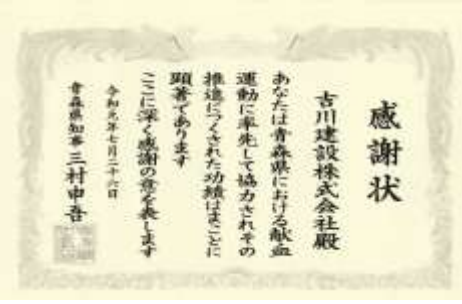 感謝状
吉川建設株式会社殿
あなたは青森県における献血
運動に率先して協力されその
推進につくされた功績はまことに
顕著であります
ここに深く感謝の意を表します
令和元年七月二十六日
青森県知事 三村申吾